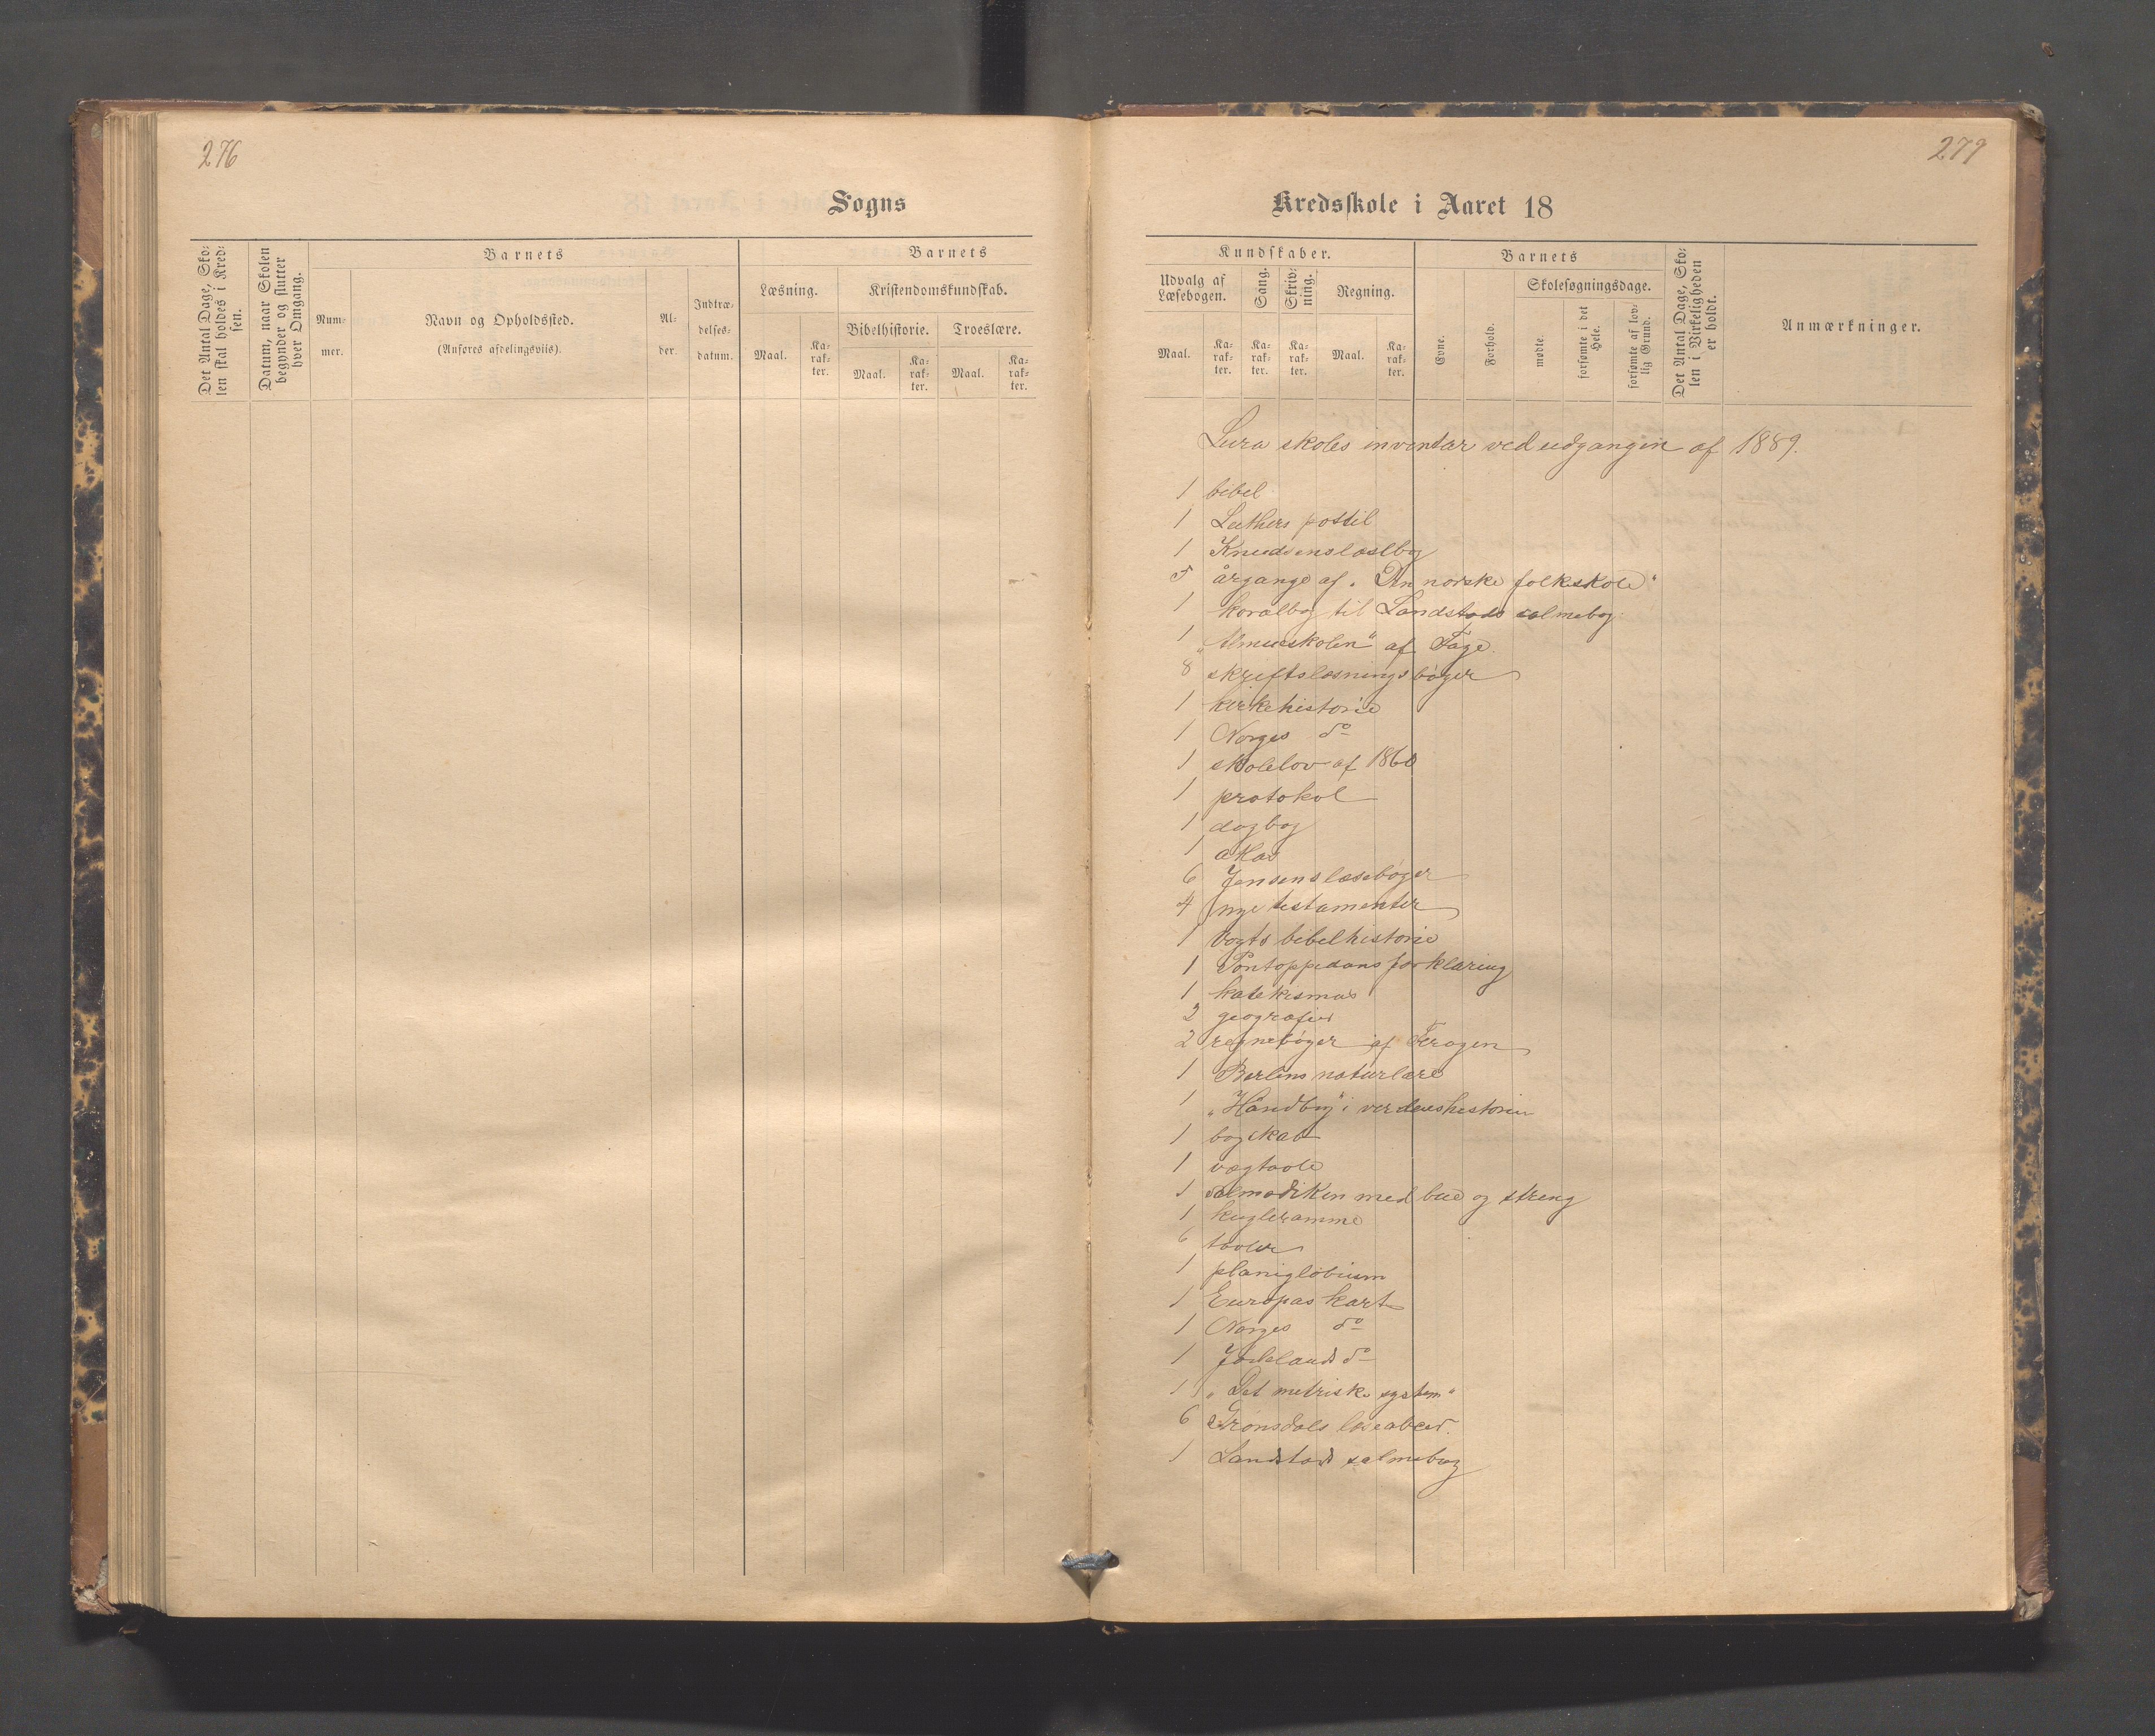 276
Sogns
Det Antal Dage, Sko-
len skal holdes i Kred-
sen.
Datum, naar Skolen
begynder og slutter
hver Omgang.
Barnets
Num-
mer.
Navn og Opholdssted.
(Anføres afdelingsviis).
Al-
der.
Indtræ-
delses-
datum.
Barnets
Læsning.
Kristendomskundskab.
Bibelhistorie.
Troeslære.
Maal.
Ka-
rak-
ter.
Maal.
Ka-
rak-
ter.
Maal.
Ka-
rak-
ter.
277
Kredsskole i Aaret 18
Kundskaber.
Udvalg af
Læsebogen.
Sang.
Skriv-
ning.
Regning.
Maal.
Ka-
rak-
ter.
Ka-
rak-
ter.
Ka-
rak-
ter.
Maal.
Ka-
rak-
ter.
Barnets
Evne.
Forhold.
Skolesøgningsdage.
mødte.
forsømte i det
Hele.
forsømte af lov-
lig Grund.
Det Antal Dage, Sko-
len i Virkeligheden
er holdt.
Anmærkninger.
Lura skoles inventar ved udgangen af 1889.
1 bibel
1 Luthers postil
1 Knudsens læsebog
5 årgange af "Den norske folkskole"
1 koralbog til Landstads salmebog
1 "Almueskolen" af Fåge
8 skriftslæsningsbøger
1 kirkehistorie
1 Norges do
1 skolelov af 1860
1 protokol
1 dagbog
1 atlas
6 Jensens læsebøger
4 nye testamenter
1 Vogts bibelhistorie
1 Pontoppidans forklaring
1 katekismus
2 geografier
2 regnebøger af Kragen
1 Berlins naturlære
1 "Håndbog" i verdenshistorien
1 bogskab
1 vægtavle
1 salmodiken med bue og streng
1 kugleramme
6 tavler
1 planiglobium
1 Europas kart
1 Norges do
1 Jødelands do
1 "Det metriske system"
6 Grønsdals læseabced.
1 Landstads salmebog